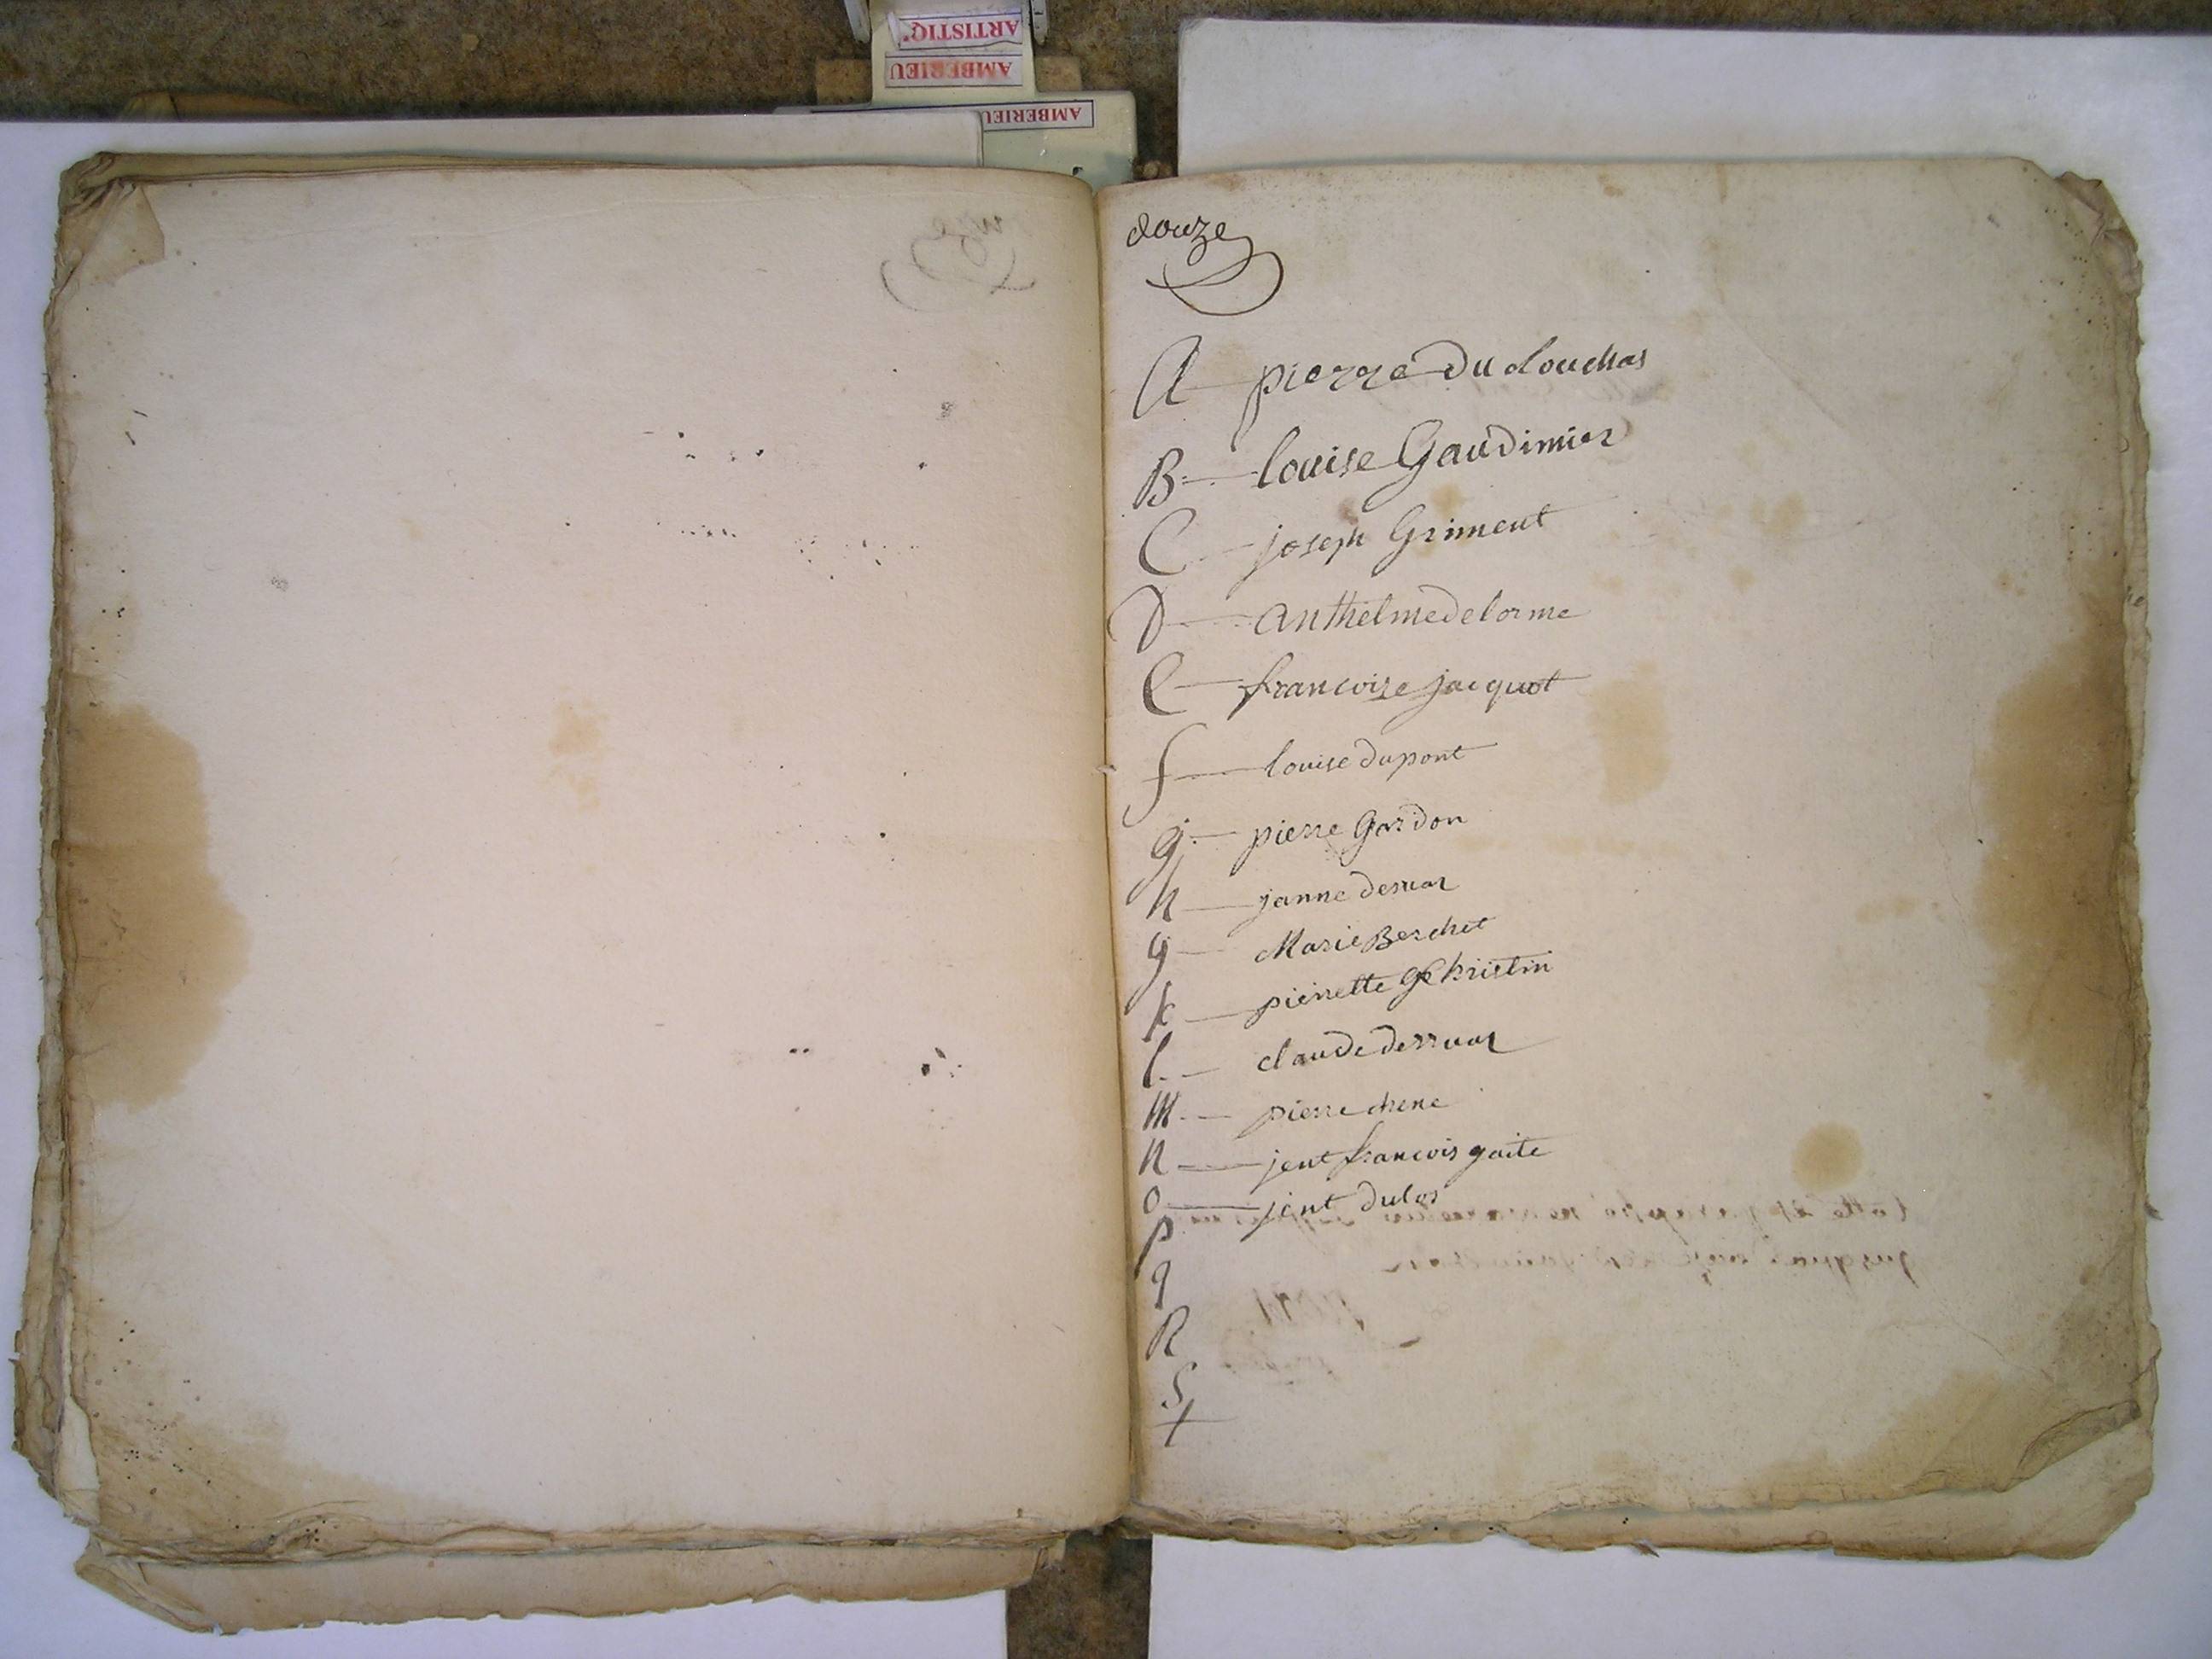 ARTISTIQ'
AMBERIEU
AMBERIEU
douze
A pierre du clouchas
B louise Gaudimier
C joseph Griment
D anthelme delorme
E francoise jacquot
f louise dupont
g pierre Gordon
h janne deruar
g Marie Berchet
k pierrette Christin
l claude derruar
M pierre chene
n jent francois gaite
o jent dulos
p
q
R
S